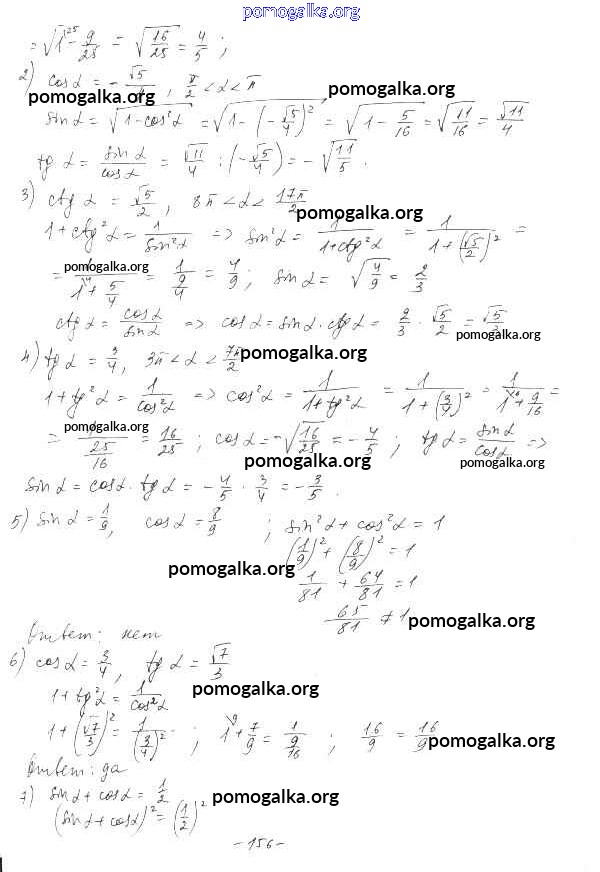 pomogalka.org
= √(1²⁵ - 9/25) = √(16/25) = 4/5 ;
2) cos α = - √5/4 , π/2 < α < π
pomogalka.org pomogalka.org
sin α = √(1 - cos² α) = √(1 - (- √5/4)²) = √(1 - 5/16) = √(11/16) = √11/4
tg α = sin α/cos α = √11/4 : (- √5/4) = - √(11/5) .
3) ctg α = √5/2 , 8π < α < 17π/2
pomogalka.org
1 + ctg² α = 1/sin² α => sin² α = 1/(1 + ctg² α) = 1/(1 + (√5/2)²) =
pomogalka.org
= 1/(1 + 5/4) = 1/(9/4) = 4/9 ; sin α = √(4/9) = 2/3
ctg α = cos α/sin α => cos α = sin α · ctg α = 2/3 · √5/2 = √5/3
pomogalka.org
4) tg α = 3/4 , 3π < α < 7π/2
pomogalka.org
1 + tg² α = 1/cos² α => cos² α = 1/(1 + tg² α) = 1/(1 + (3/4)²) = 1/(1 + 9/16) =
pomogalka.org
= 1/(25/16) = 16/25 ; cos α = - √(16/25) = - 4/5 ; tg α = sin α/cos α =>
pomogalka.org pomogalka.org
sin α = cos α · tg α = - 4/5 · 3/4 = - 3/5 .
5) sin α = 1/9 , cos α = 8/9 ; sin² α + cos² α = 1
(1/9)² + (8/9)² = 1
pomogalka.org
1/81 + 64/81 = 1
65/81 ≠ 1
pomogalka.org
Ответ: нет
6) cos α = 3/4 , tg α = √7/3
pomogalka.org
1 + tg² α = 1/cos² α
1 + (√7/3)² = 1/(3/4)² ; 1 + 7/9 = 1/(9/16) ; 16/9 = 16/9
pomogalka.org
Ответ: да
7) sin α + cos α = 1/2
pomogalka.org
(sin α + cos α)² = (1/2)²
- 156 -